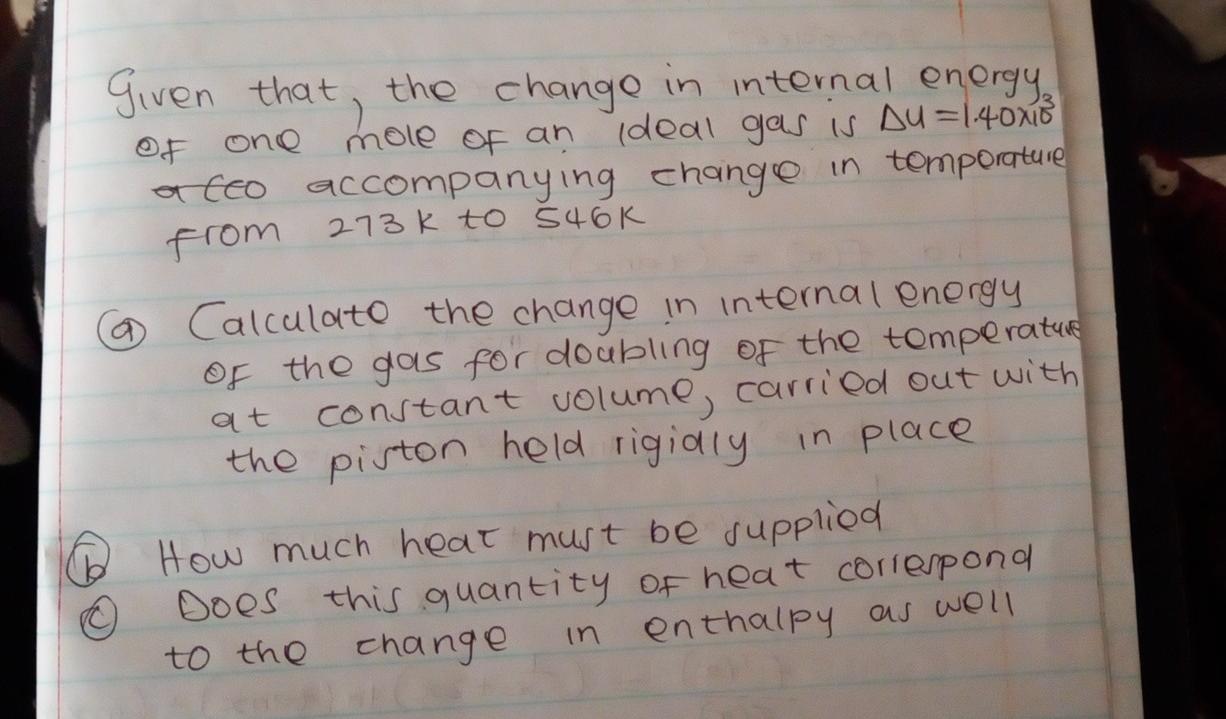 Given that, the change in internal energy
of one mole of an ideal gas is ΔU=1.40x10³
accompanying change in temperature
from 273K to 546K
(a) Calculate the change in internal energy
of the gas for doubling of the temperature
at constant volume, carried out with
the piston held rigidly in place
(b) How much heat must be supplied
(c) Does this quantity of heat correspond
to the change in enthalpy as well